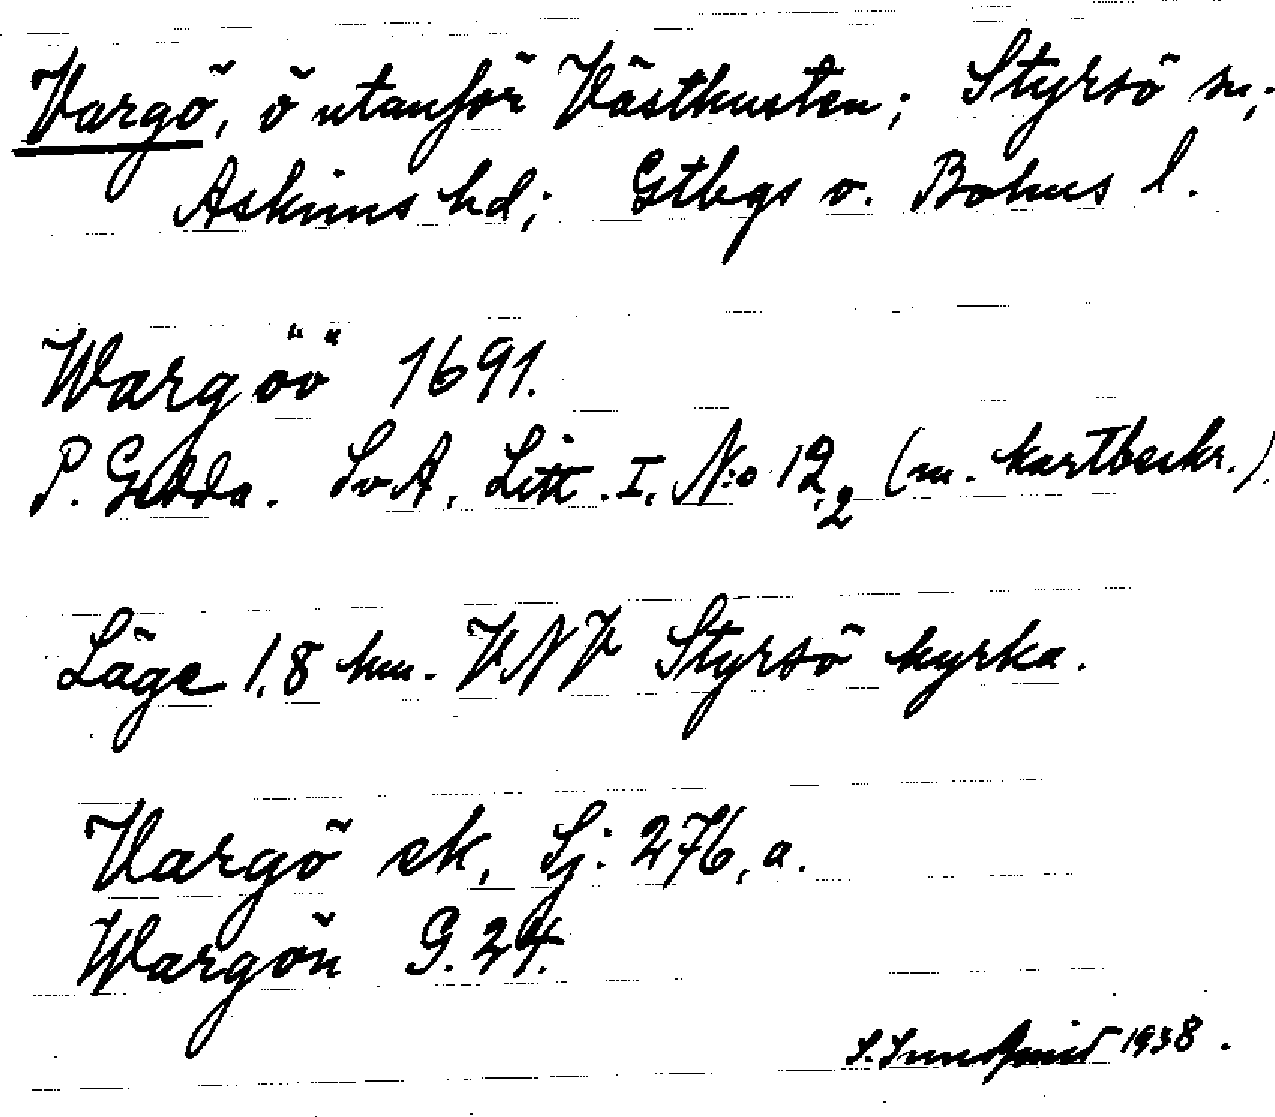 Vargö, ö utanför Västkusten; Styrsö sn;
Askims hd; Gtbgs o. Bohus l.
Wargöö 1691.
P. Gedda. SvA. Litt. I. N:o 12,2 (m. kartbeskr.).
Läge 1,8 km. VNV Styrsö kyrka.
Vargö ek, Sj: 276, a.
Wargön G.24.
S. Sundqvist 1938.